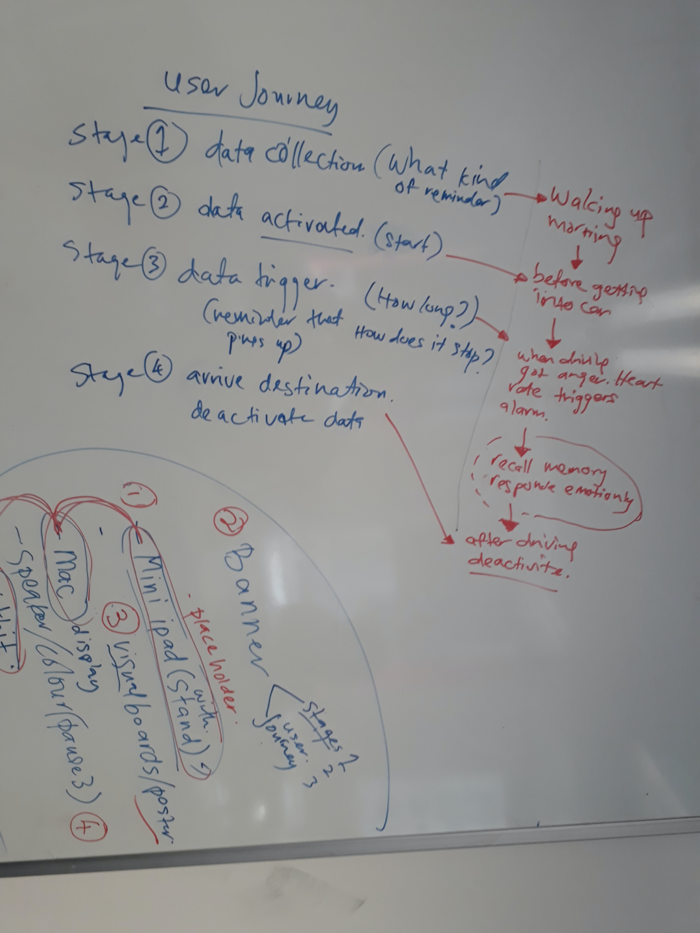 user Journey
Stage ① data collection (What kind
of reminder)
Stage ② data activated. (Start)
Stage ③ data trigger. (How long?)
(reminder that How does it stop?
pops up)
Stage ④ arrive destination.
deactivate data
Waking up
morning
before getting
into car
when driving
got anger. Heart
rate triggers
alarm.
recall memory
response emotionly
after driving
deactivate.
② Banner
stages 1
2
3
user
journey
placeholder.
① - Mini ipad (with
Stand)
③ visual boards/poster
- Mac display
- Speaker/colour (pause 3) ④